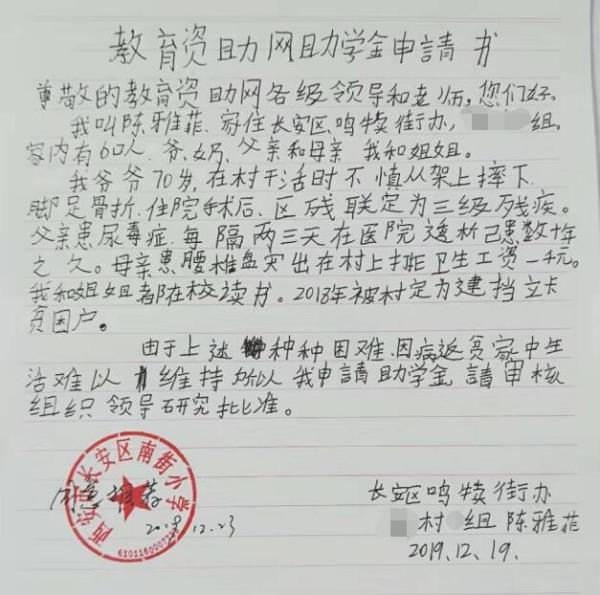 教育资助网助学金申請书
尊敬的教育资助网各级领导和老师，您们好。
我叫陈雅菲.家住长安区.鸣犊街办，组。
家内有6口人.爷.奶.父亲和母亲 我和姐姐。
我爷爷70岁，在村干活时不慎从架上摔下.
脚足骨折.住院手术后、区残联定为三级残疾。
父亲患尿毒症.每隔两三天在医院透析已患数十年
之久。母亲患腰椎盘突出在村上搞卫生工资一千元。
我和姐姐都在校读书。2018年被村定为建挡立卡
贫困户。
由于上述种种困难.因病返贫家中生
活难以维持所以我申請助学金.請审核
组织领导研究批准。
西安市长安区南街小学
同意推荐
12.23
6101160007
长安区鸣犊街办
村 组 陈雅菲
2019.12.19.